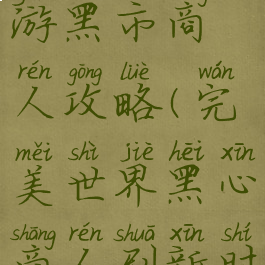 游黑市商
rén gōng lüè wán
人攻略(完
měi shì jiè hēi xīn
美世界黑心
shāng rén shuā xīn shí
商人刷新时